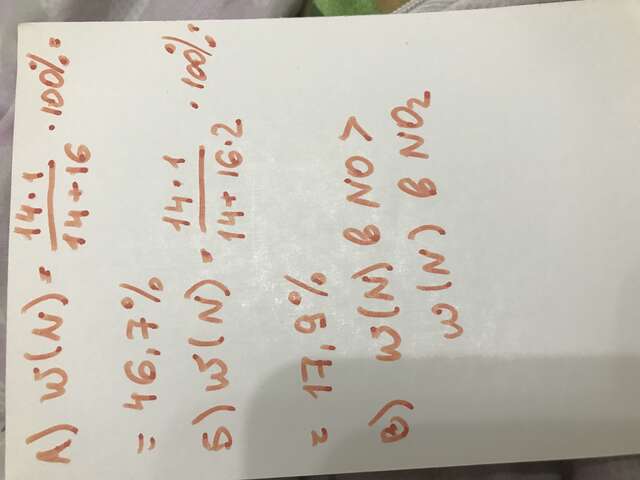 А) W(N) = 14·1 / 14+16 · 100% =
= 46,7%
Б) W(N) = 14·1 / 14+16·2 · 100% =
= 17,9%
в) W(N) в NO >
W(N) в NO₂